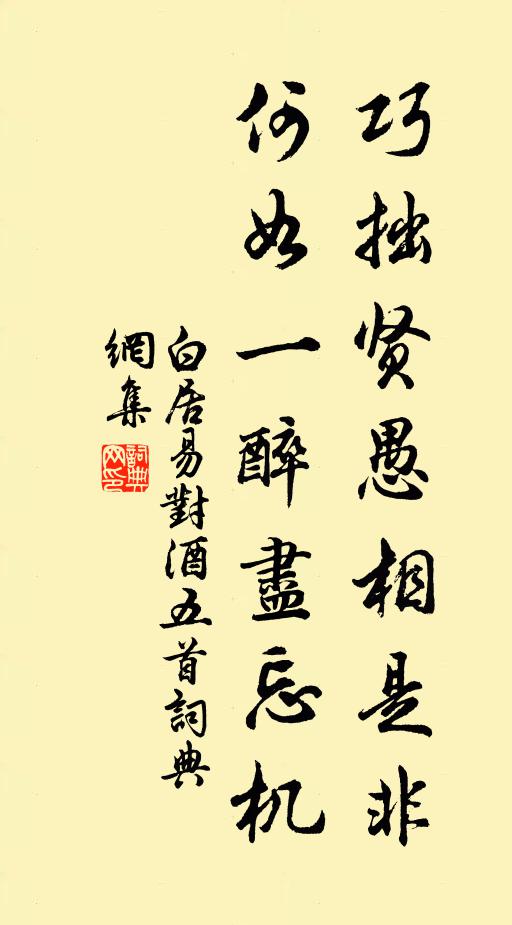 巧拙贤愚相是非
何如一醉盡忘机
白居易對酒五首詞典
網集
詞典
网印